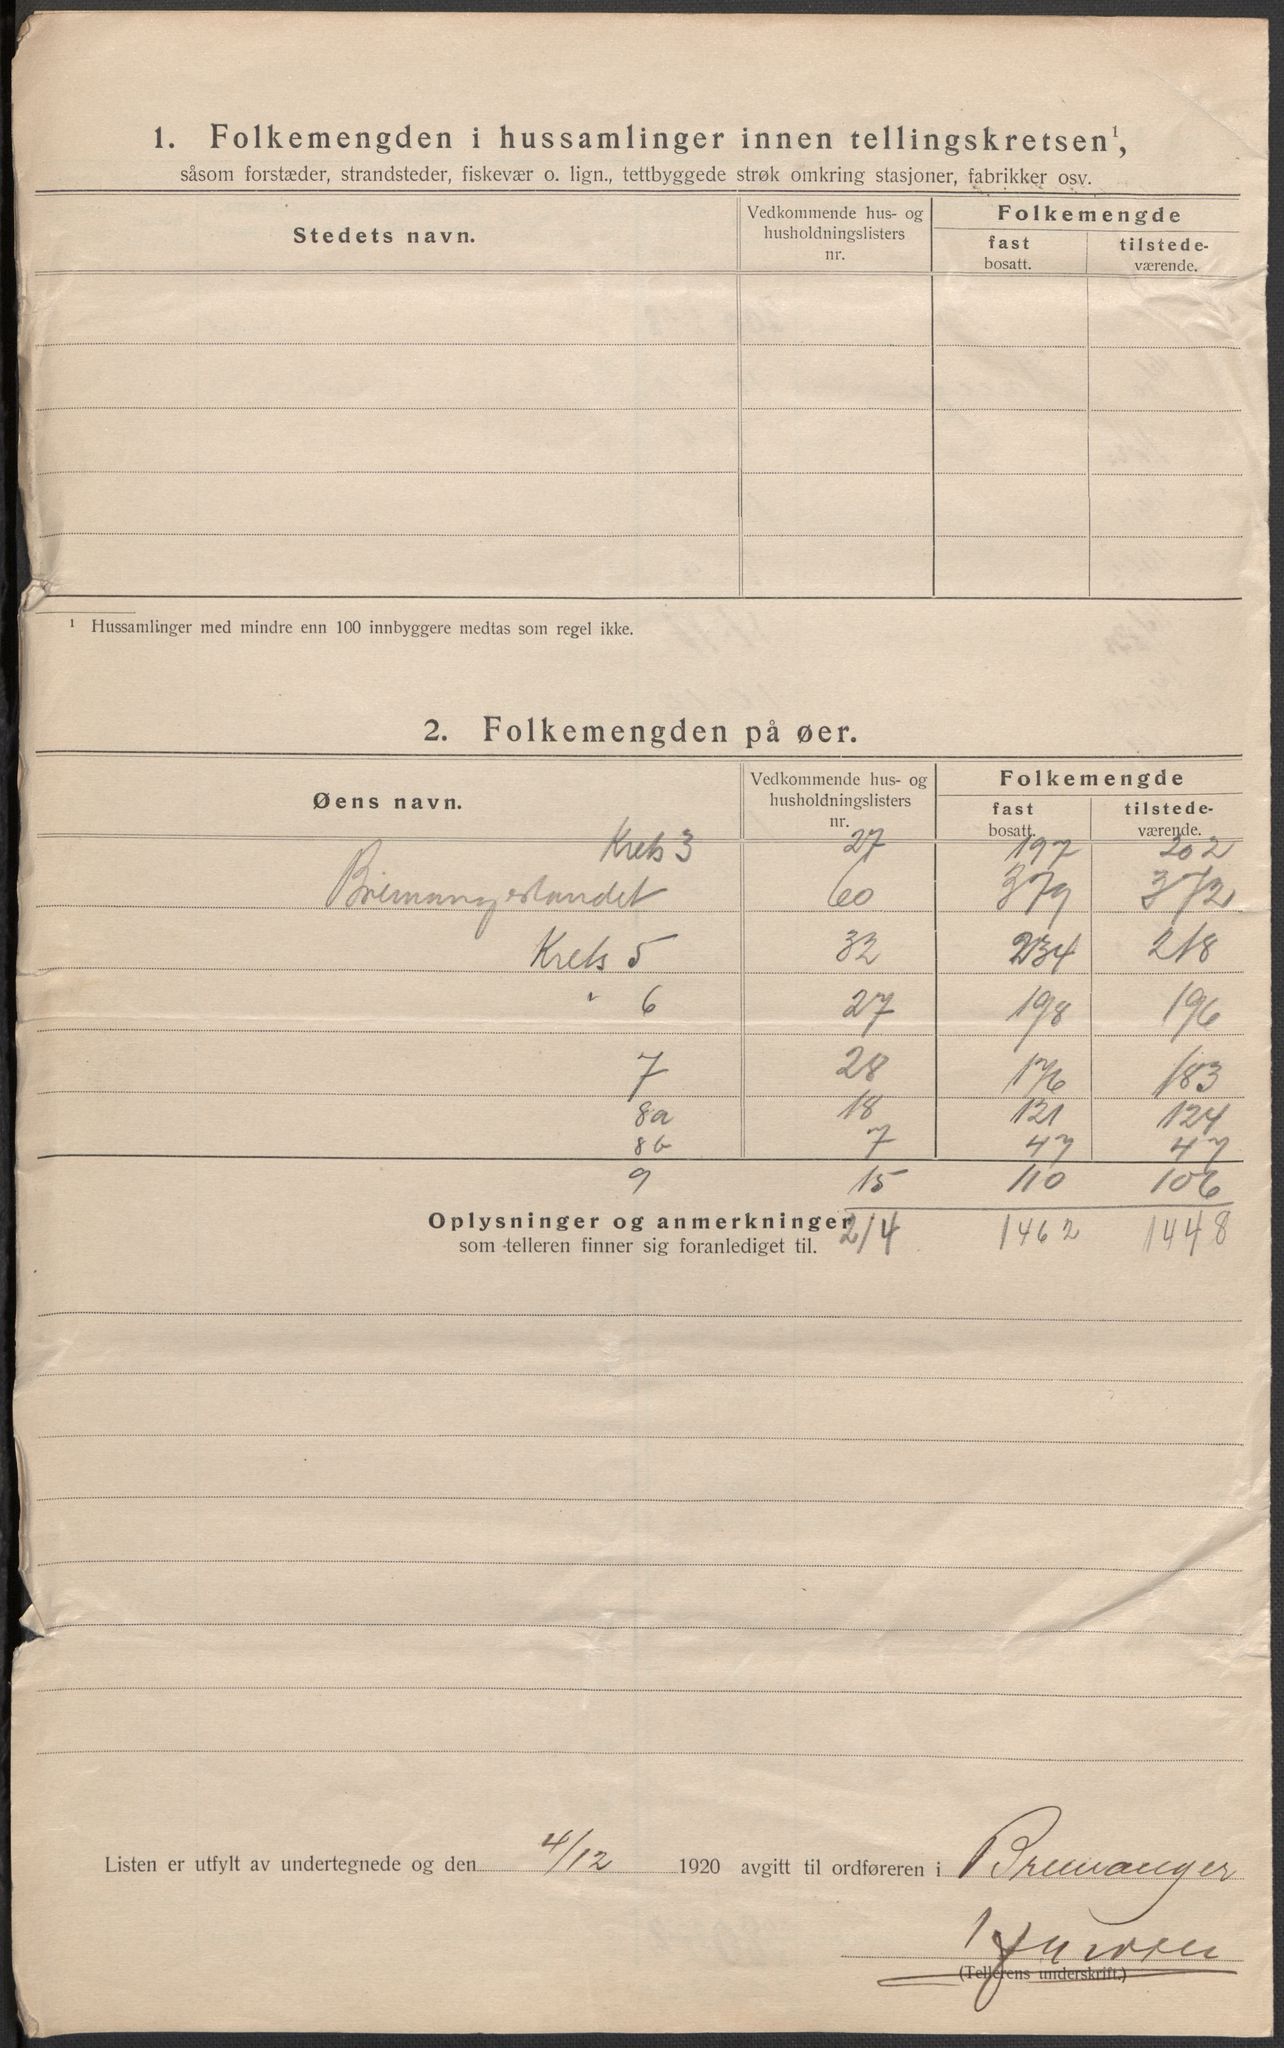 1. Folkemengden i hussamlinger innen tellingskretsen¹,
såsom forstæder, strandsteder, fiskevær o. lign., tettbyggede strøk omkring stasjoner, fabrikker osv.
Stedets navn.
Vedkommende hus- og
husholdningslisters
nr.
Folkemengde
fast
bosatt.
tilstede-
værende.
¹ Hussamlinger med mindre enn 100 innbyggere medtas som regel ikke.
2. Folkemengden på øer.
Øens navn.
Vedkommende hus- og
husholdningslisters
nr.
Folkemengde
fast
bosatt.
tilstede-
værende.
Krets 3 27 197 202
Bremangerlandet 60 379 372
Krets 5 32 234 218
" 6 27 198 196
7 28 176 183
8a 18 121 124
8b 7 47 47
9 15 110 106
214 1462 1448
Oplysninger og anmerkninger
som telleren finner sig foranlediget til.
Listen er utfylt av undertegnede og den 4/12 1920 avgitt til ordføreren i Bremanger
(Tellerens underskrift.)